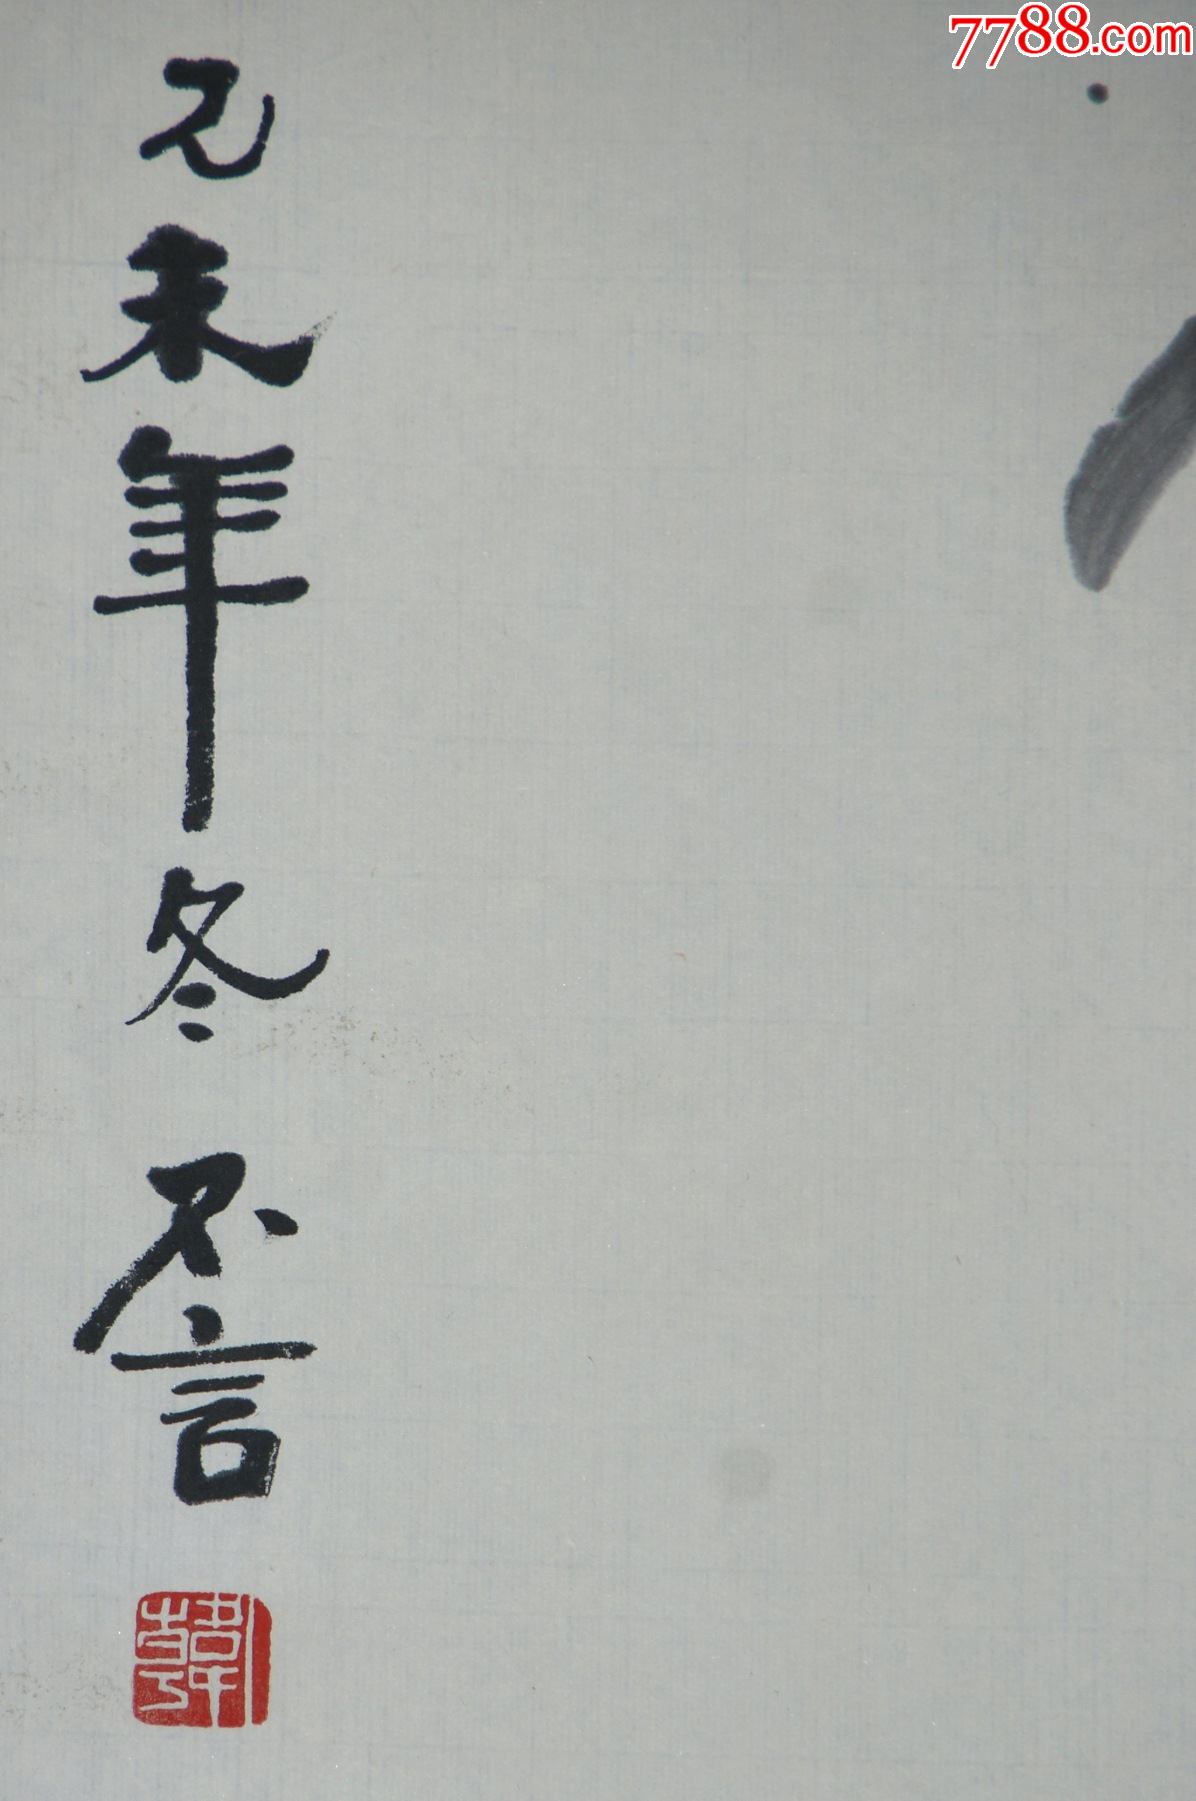 7788.com
己未年冬
不言